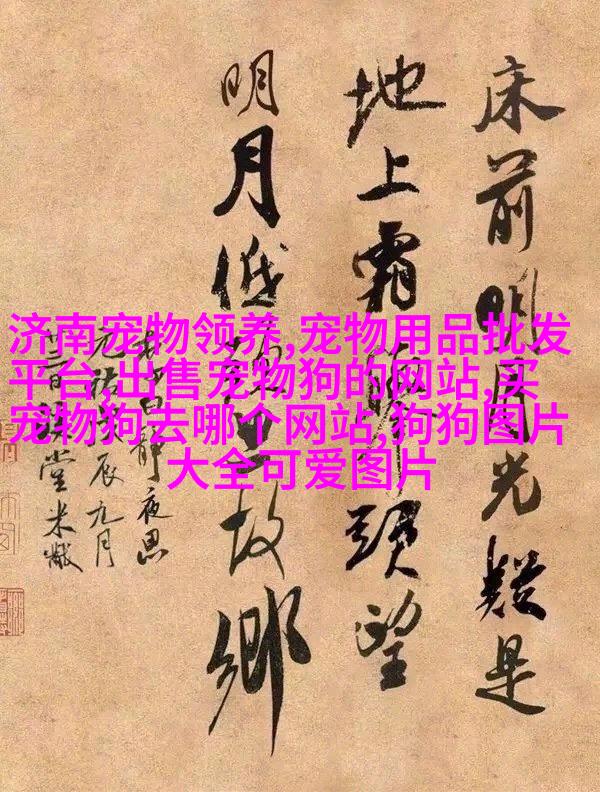 床前明月光疑是
地上霜頭望
明月低故鄉
白靜夜思
元祐辰九月
日堂米黻
济南宠物领养,宠物用品批发
平台,出售宠物狗的网站,买
宠物狗去哪个网站,狗狗图片
大全可爱图片